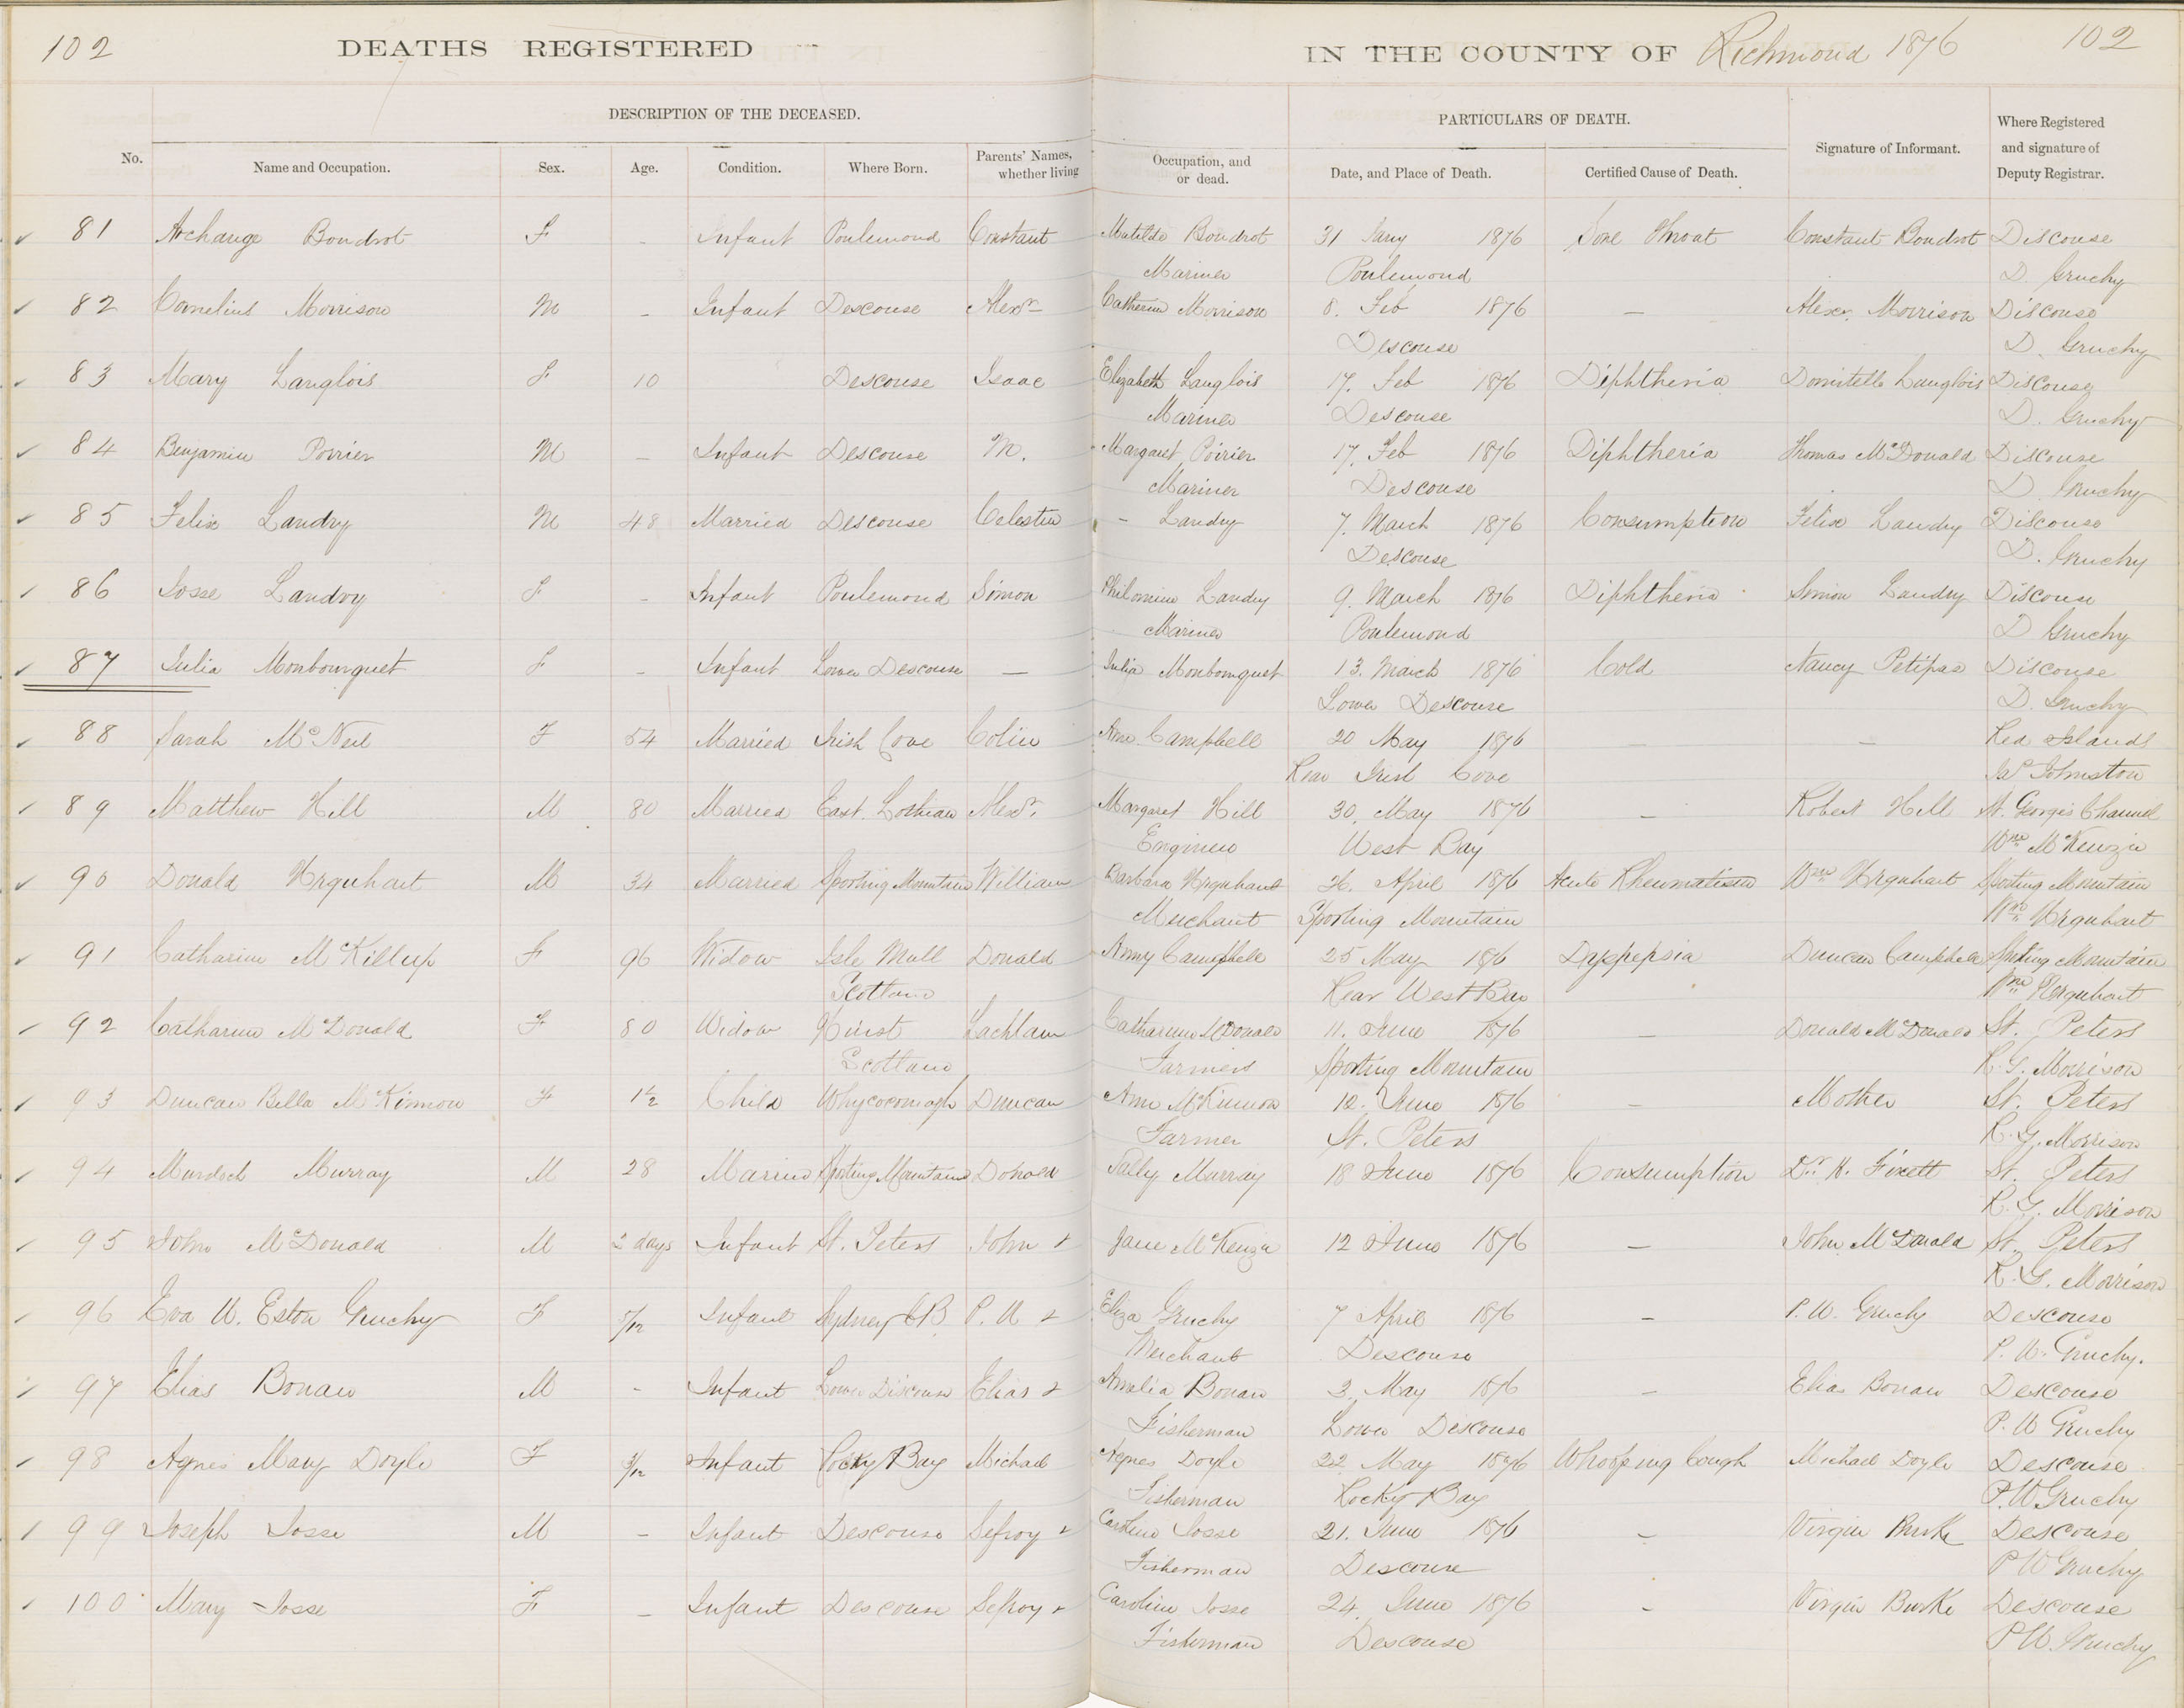 102 DEATHS REGISTERED IN THE COUNTY OF Richmond 1876 102
DESCRIPTION OF THE DECEASED. PARTICULARS OF DEATH. Where Registered
No. Name and Occupation. Sex. Age. Condition. Where Born. Parents' Names, Occupation, and Date, and Place of Death. Certified Cause of Death. Signature of Informant. and signature of
whether living or dead. Deputy Registrar.
81 Archange Boudrot F - Infant Poulemond Constant Matilda Boudrot 31 Jany 1876 Sore Throat Constant Boudrot Discouse
Mariner Poulemond D. Gruchy
82 Cornelius Morrison M - Infant Descouse Alexr Catherin Morrison 8. Feb 1876 — Alexr. Morrison Discouse
Descouse D. Gruchy
83 Mary Langlois F 10 Descouse Isaac Elizabeth Langlois 17. Feb 1876 Diphtheria Langlois Discouse
Mariner Descouse D. Gruchy
84 Benjamin Poirier M - Infant Descouse M. Margaret Poirier 17. Feb 1876 Diphtheria Thomas McDonald Discouse
Mariner Descouse D. Gruchy
85 Felix Landry M 48 Married Descouse Celestin - Landry 7. March 1876 Consumption Felix Landry Discouse
Descouse D. Gruchy
86 Josse Landry F - Infant Poulemond Simon Philomine Landry 9. March 1876 Diphtheria Simon Landry Discouse
Mariner Poulemond D Gruchy
87 Julia Monbourquet F - Infant Lower Descouse — Julia Monbourquet 13. March 1876 Cold Nancy Petipas Discouse
Lower Descouse D. Gruchy
88 Sarah McNeil F 54 Married Irish Cove Colin Ann Campbell 20 May 1876 — — Red Islands
Rear Irish Cove Jas Johnston
89 Matthew Hill M 80 Married East Lothian Alexr. Margaret Hill 30, May 1876 - Robert Hill St. Georges Channel
Engineer West Bay Wm McKenzie
90 Donald Urquhart M 34 Married Sporting Mountain William Barbara Urquhart 26. April 1876 Acute Rheumatism Wm Urquhart Sporting Mountain
Merchant Sporting Mountain Wm Urquhart
91 Catharine McKillup F 96 Widow Isle Mull Donald Campbell 25 May 1876 Dyspepsia Duncan Campbell Sporting Mountain
Scotland Rear West Bay Wm Urquhart
92 Catharine McDonald F 80 Widow Uist Lachlan Catharine McDonald 11. June 1876 — Donald McDonald St. Peters
Scotland Farmers Sporting Mountain R. G. Morrison
93 Duncan Bella McKinnon F 1½ Child Whycocomagh Duncan Ann McKinnon 12. June 1876 — Mother St. Peters
Farmer St. Peters R. G. Morrison
94 Murdoch Murray M 28 Married Sporting Mountain Donald Sally Murray 18 June 1876 Consumption Dr. H. Fixott St. Peters
R. G. Morrison
95 John McDonald M 2 days Infant St. Peters John & Jane McKenzie 12 June 1876 — John McDonald St. Peters
R. G. Morrison
96 Eva W. Eston Gruchy F 5/12 Infant Sydney CB P. W & Eliza Gruchy 7 April 1876 - P. W. Gruchy Descouse
Merchant Descouse P. W. Gruchy.
97 Elias Bonaw M - Infant Lower Discouse Elias & Amelia Bonaw 3, May 1876 - Elias Bonaw Descouse
Fisherman Lower Descouse P. W Gruchy
98 Agnes Mary Doyle F 3/12 Infant Rocky Bay Michael Agnes Doyle 22 May 1876 Whooping Cough Michael Doyle Descouse
Fisherman Rocky Bay P. W Gruchy
99 Joseph Josse M - Infant Descouse Sefroy & Caroline Josse 21. June 1876 - Virgin Burke Descouse
Fisherman Descouse P W Gruchy
100 Mary Josse F - Infant Descouse Sefroy & Caroline Josse 24. June 1876 - Virgin Burke Descouse
Fisherman Descouse P W. Gruchy